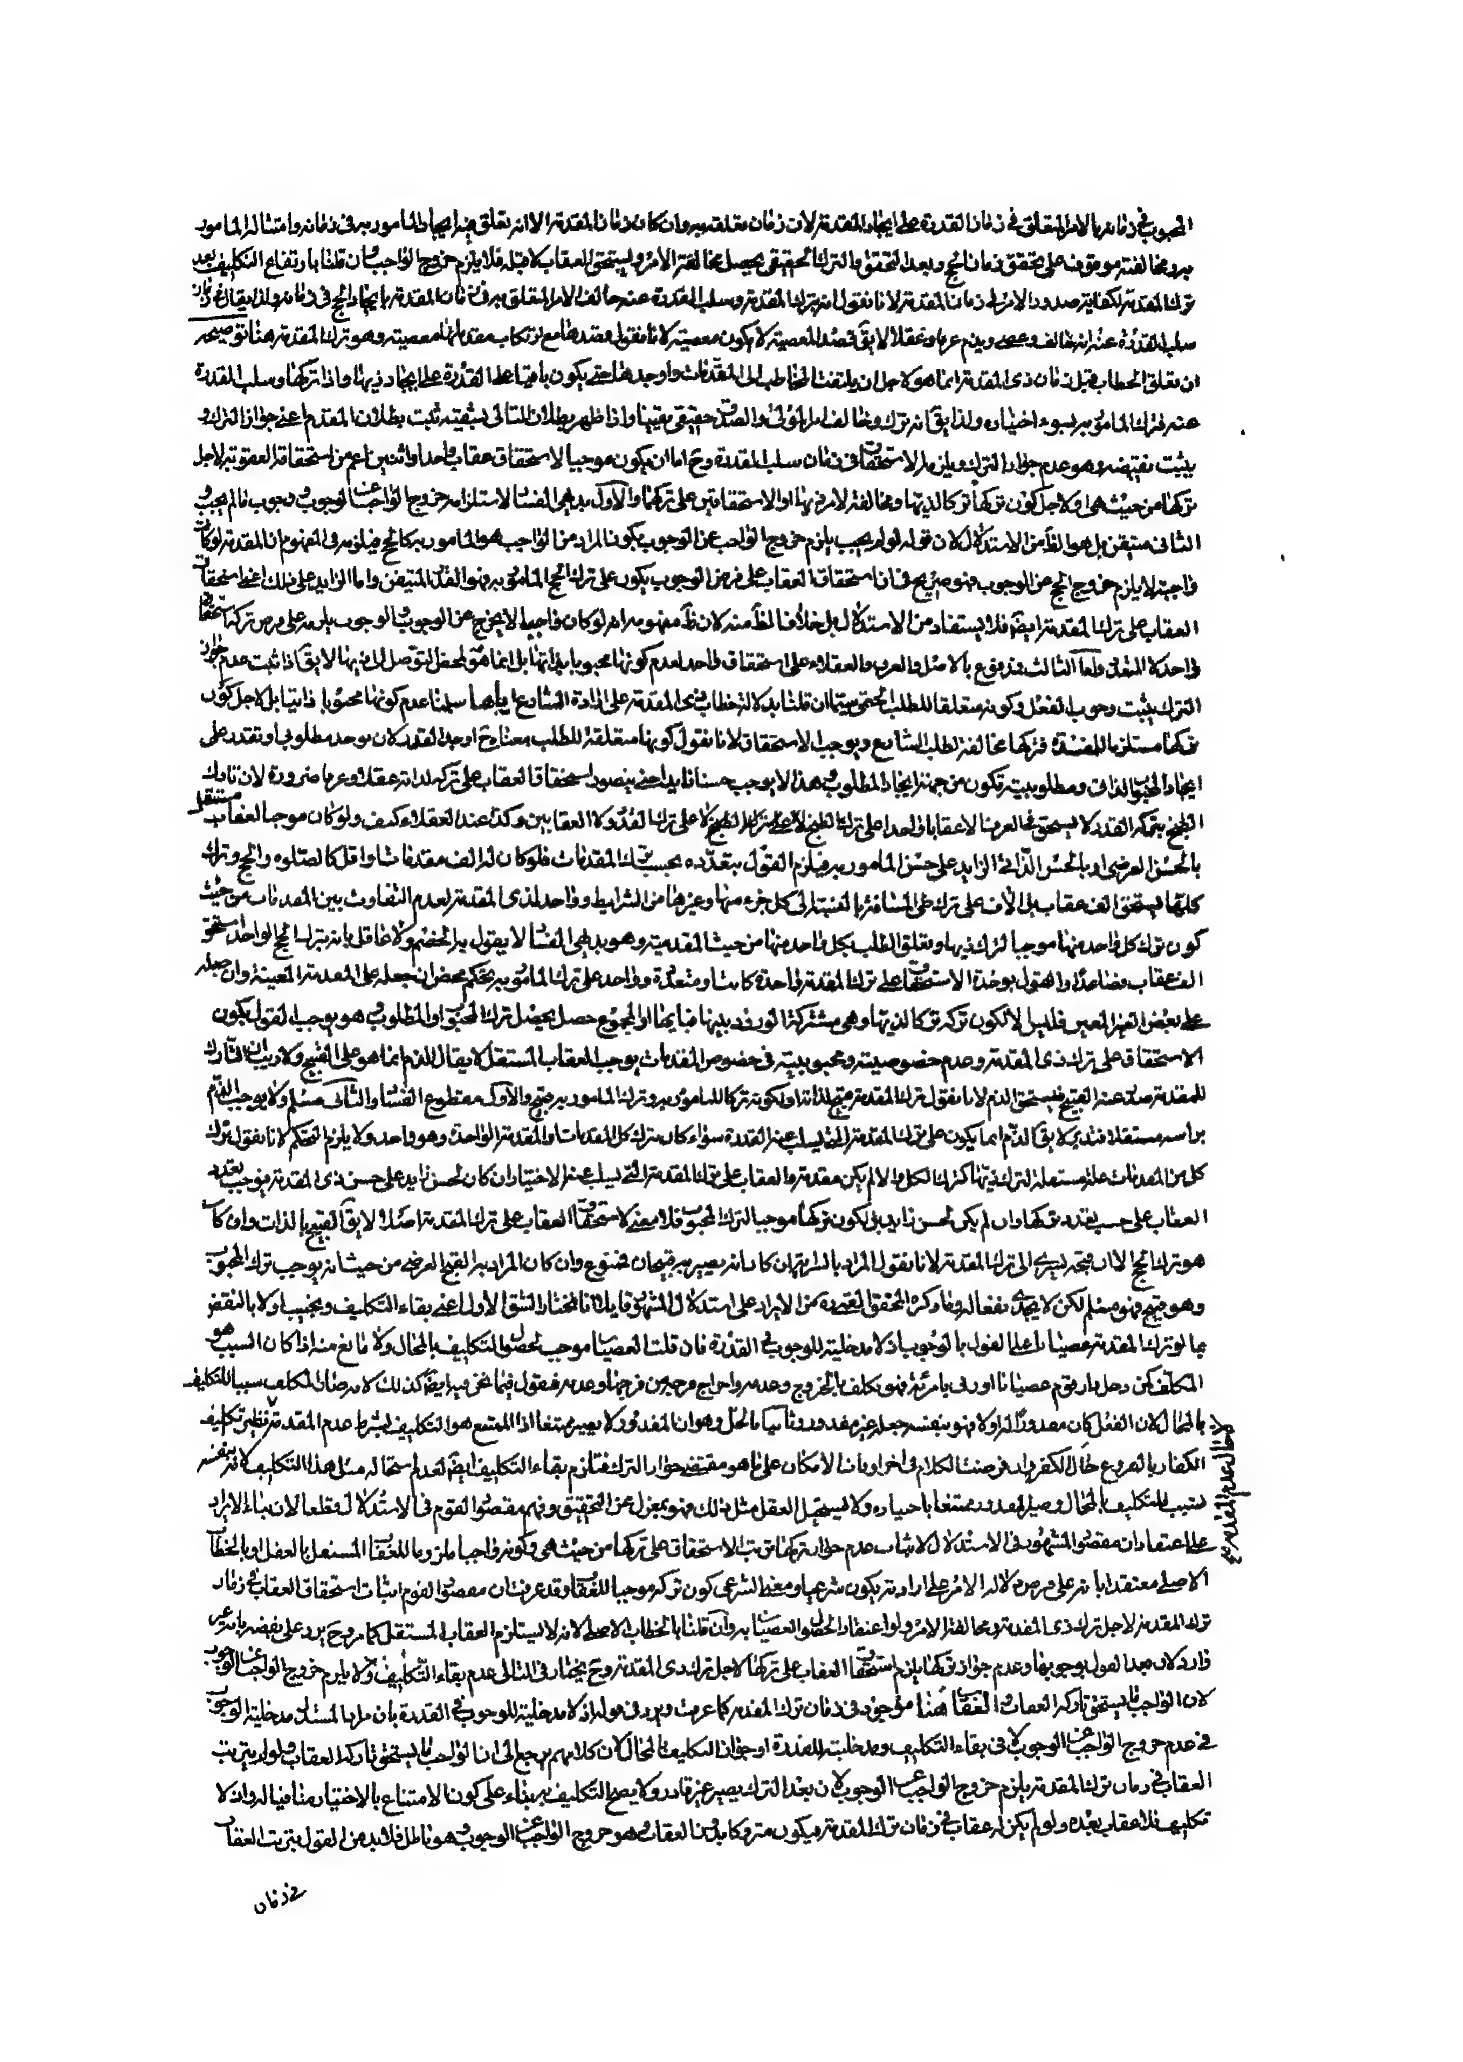 المحبوب في زمانه بالامر المتعلق في زمان القدرة على ايجاد المقدمة لان زمان تعلقه به وان كان زمان المقدمة الا انه تعلق به ايجاد المامور به في زمانه وامتثاله المامور
به ومخالفته موقوفة على تحقق زمان الحج وبعد التحقق والترك الحقيقي يحصل مخالفة الامر ويستحق العقاب لا قبله فلا يلزم خروج الواجب وان قلنا بارتفاع التكليف بعد
ترك المقدمة لكفاية صدور الامر له زمان المقدمة لانا نقول انه بترك المقدمة وسلب القدرة عنه خالف الامر المتعلق به في زمان المقدمة بايجاد الحج في زمانه ولذا يقال في زمان
سلب القدرة عنه انه خالف وعصى ويذم عرفا وعقلا لا يق قصد المعصية لا يكون معصية لانا نقول قصدها مع ارتكاب مقدماتها معصية وهو ترك المقدمة هنا توضيحه
ان تعلق الخطاب قبل زمان ذي المقدمة انما هو لاجل ان يلتفت المخاطب الى المقدمات واوجدها حتى يكون باقيا على القدرة على ايجاد ذيها واذا تركها وسلب القدرة
عنه فترك المامور به بسوء اختياره ولذا يق انه ترك وخالف امر المولى والصدق حقيقي يقينا واذا ظهر بطلان التالي بشقيه ثبت بطلان المقدم اعني جواز الترك و
يثبت نقيضه وهو عدم جواز الترك ويلزمه الاستحقاق في زمان سلب القدرة وح اما ان يكون موجبا لاستحقاق عقاب واحد او اثنين اعم من استحقاقه العقوبة لاجل
تركها من حيث هي او لاجل كون تركها تركا لذيها ومخالفة لامر ذيها او الاستحقاقين على تركهما والاول بديهي الفساد لاستلزامه خروج الواجب عن الوجوب ووجوب ما لم يجب و
الثاني متيقن بل هو الظ من الاستدلال لان قوله لو لم يجب يلزم خروج الواجب عن الوجوب يكون المراد من الواجب هو المامور به كالحج فيلزمه في المفهوم ان المقدمة لو كانت
واجبة لا يلزم خروج الحج عن الوجوب فهو صريح في ان استحقاق العقاب على فرض الوجوب يكون على ترك الحج المامور به فهو القدر المتيقن واما الزايد على ذلك اعني استحقاق
العقاب على ترك المقدمة ايضا فلا يستفاد من الاستدلال بل خلاف الظ منه لان ظ مفهومه انه لو كان واجبا لا يخرج عن الوجوب والوجوب يلزمه على فرض تركه استحقاق
واحد لا المتعدد واما الثالث فمدفوع بالاصل والعرف والعقلاء على استحقاق واحد لعدم كونها محبوبا بذاتها بل انما هو لمحض التوصل الى ذيها لا يق اذا ثبت عدم جواز
الترك يثبت وجوب الفعل وكونه متعلقا للطلب الحتمي سيما ان قلنا بدلالة خطاب ذي المقدمة على ارادة الشارع اياها سلمنا عدم كونها محبوبا ذاتيا بل لاجل كون
تركها مستلزما للمفسدة فتركها مخالفة لطلب الشارع ويوجب الاستحقاق لانا نقول كونها متعلقة للطلب معناه اوجد المقدمة لان يوجد مطلوبي او تقدر على
ايجاد المحبوب الذاتي ومطلوبيته تكون من جهة ايجاد المطلوب وهذا لا يوجب حسنا زايدا حتى يتصور استحقاق العقاب على تركه لذاته عقلا وعرفا ضرورة لان تارك
الطبخ بتركه القدر لا يستحق في العرف الا عقابا واحدا على ترك الطبخ لا على ترك القدر ولا العقابين وكذا عند العقلاء كيف ولو كان موجبا لعقاب مستقل
بالحسن العرضي او بالحسن الذاتي الزايد على حسن المامور به فيلزم القول بتعدده بحسب ترك المقدمات فلو كان له الف مقدمة شاقا واقل كالصلوة والحج وترك
كلها يستحق الف عقاب بل الاف على ترك طي المسافة بالنسبة الى كل جزء منها وغيرها من الشرايط وواحد لذي المقدمة لعدم التفاوت بين المقدمات من حيث
كون ترك كل واحد منها موجبا لترك ذيها وتعلق الطلب بكل واحد منها من حيث المقدمية وهو بديهي الفساد لا يقول به الخصم ولا عاقل بانه بترك الحج الواحد استحق
الف عقاب فصاعدا والقول بوحدة الاستحقاق على ترك المقدمة واحدة كانت او متعددة وواحد على ترك المامور به تحكم محض ان جعله على المقدمة المعينة وان جعله
على بعض الغير المعين فليس الا لكون تركه تركا لذيها وهي مشتركة الورود بينها فبايها او المجموع حصل يحصل ترك المحبوب او المطلوب وهو يوجب القول بكون
الاستحقاق على ترك ذي المقدمة وعدم خصوصية ومحبوبية في خصوص المقدمات يوجب العقاب المستقل لا يقال الذم انما هو على القبيح ولا ريب ان التارك
للمقدمة صدر عنه القبيح فيستحق الذم لانا نقول ترك المقدمة قبيح لذاتها او لكونه تركا للمامور به وترك المامور به قبيح والاول مقطوع الفساد والثاني مسلم ولا يوجب الذم
براسه مستقلا لا يق الذم انما يكون على ترك المقدمة التي يسلب عنه القدرة سواء كان ترك كل المقدمات او المقدمة الواحدة وهو واحد ولا يلزم التحكم لانا نقول ترك
كل من المقدمات علة مستقلة لترك ذيها كترك الكل والا لم يكن مقدمة والعقاب على ترك المقدمة التي يسلب عنه الاختيار ان كان لحسن زايد على حسن ذي المقدمة فيوجب تعدد
العقاب على حسب تعدد تركها وان لم يكن لحسن زايد بل لكون تركها موجبا لترك المحبوب فلا معنى لاستحقاق العقاب على ترك المقدمة اصلا لا يق القبيح بالذات وان كان
هو ترك الحج الا ان قبحه يسري الى ترك المقدمة لانا نقول المراد بالسراية ان كان انه يصير به قبيحان فممنوع وان كان المراد به القبح العرضي من حيث انه يوجب ترك المحبوب
وهو قبيح فهو مسلم لكن لا يجدي نفعا له وما ذكره المحقق من الايراد على استدلال المشهور قايلا انا نختار الشق الاول اعني بقاء التكليف ويجيب اولا بالنقض
بما لو ترك المقدمة عصيانا على القول بالوجوب اذ لا مدخلية للوجوب في القدرة فان قلت العصيان موجب لحصول التكليف بالمحال ولا مانع منه اذا كان السبب هو
المكلف كمن دخل دار قوم عصيانا او زنى بامرئة فهو مكلف بالخروج وعدمه واخراج فرجه من فرجها وعدمه فنقول فيما نحن فيه ايضا كذلك لانه صار المكلف سببا للتكليف
بالمحال لان الفعل كان مقدورا له اولا فهو بنفسه جعله غير مقدور وثانيا بالحل وهو ان المقدور لا يصير ممتنعا اذا الممتنع هو التكليف بشرط عدم المقدمة نظير تكليف
لا حال عدم المقدمة صح
الكفار بالفروع حال الكفر
سبب للتكليف بالمحال وصير المقدور ممتنعا باختياره ولا يستحيل العقل مثل ذلك فهو بمعزل عن التحقيق وفهم مقصود القوم في الاستدلال قطعا لان بناء الايراد
على اعتقاد ان مقصود المشهور في الاستدلال لاثبات عدم جواز تركها ترتب الاستحقاق على تركها من حيث هي وكونه واجبا ملزوما للعقاب المستقل بالعقل او بالخطاب
الاصلي معتقدا بانه على فرض دلالة الامر على ارادته يكون شرعيا ومعنى الشرعي كون تركه موجبا للعقاب وقد عرفت ان مقصود القوم اثبات استحقاق العقاب في زمان
ترك المقدمة لاجل ترك ذي المقدمة ومخالفة الامر ولو اعتقاد الحصول العصيان به وان قلنا بالخطاب الاصلي لانه لا يستلزم العقاب المستقل كما مر وح يرد على نقضه بانه غير
وارد لان بعد القول بوجوبها وعدم جواز تركها يلزم استحقاق العقاب على تركها لاجل ترك ذي المقدمة وح يختار في التالي عدم بقاء التكليف ولا يلزم خروج الواجب عن الوجوب
لان الواجب ما يستحق تاركه العقاب والعقاب هنا موجود في زمان ترك المقدمة كما عرفت ويرد في قوله اذ لا مدخلية للوجوب في القدرة بان مراد المستدل مدخلية الوجوب
في عدم خروج الواجب عن الوجوب لا في بقاء التكليف ومدخليته للقدرة او جواز التكليف بالمحال لان كلامهم يرجع الى ان الواجب ما يستحق تاركه العقاب ولو لم يترتب
العقاب في زمان ترك المقدمة يلزم خروج الواجب عن الوجوب لان بعد الترك يصير غير قادر ولا يصح التكليف به بناء على كون الامتناع بالاختيار منافيا له واذ لا
تكليف فلا عقاب بعده ولو لم يكن له عقاب في زمان ترك المقدمة فيكون متروكا بدون العقاب وهو خروج الواجب عن الوجوب وهو باطل فلا بد من القول بترتب العقاب
في زمان